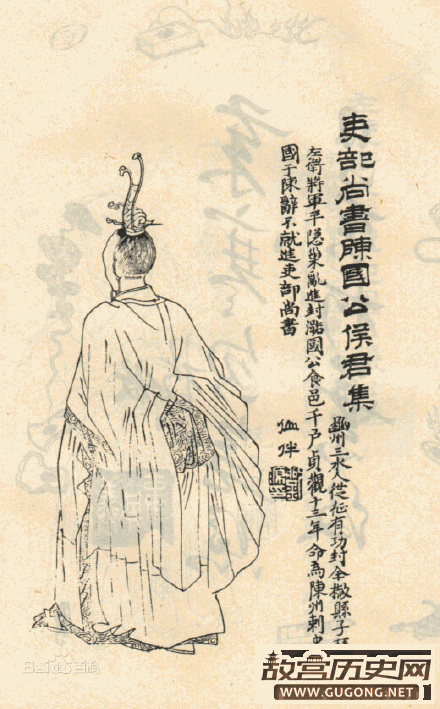 吏部尚書陳國公侯君集
豳州三水人從征有功封全椒縣子拜
左衛將軍平隱巢亂進封潞國公食邑千戶貞觀十三年命為陳州刺史
國于陳辭不就進吏部尚書
Bai百科
故宫历史网
WWW.GUGONG.NET